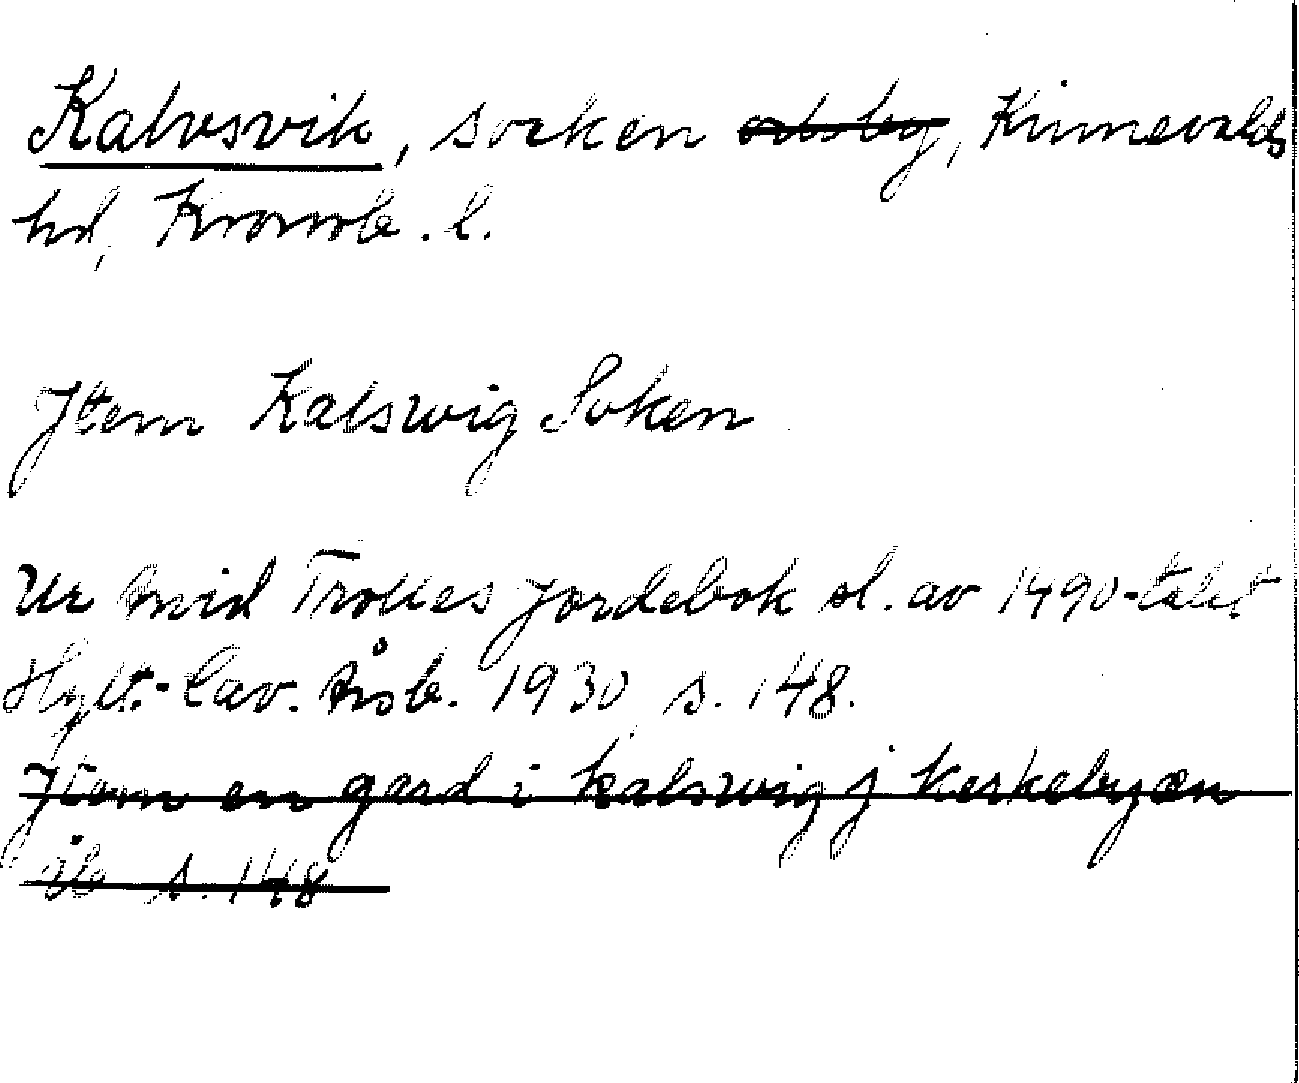 Kalvsvik, socken och by, Kinnevalds
hd, Kronob. l.
Jtem Kalswig Soken
Ur Arvid Trolles jordebok sl. av 1490-talet
Hylt.-Cav. Årsb. 1930 s. 148.
Jtem en gard i kalswig j kerkebyæn
ib s. 148